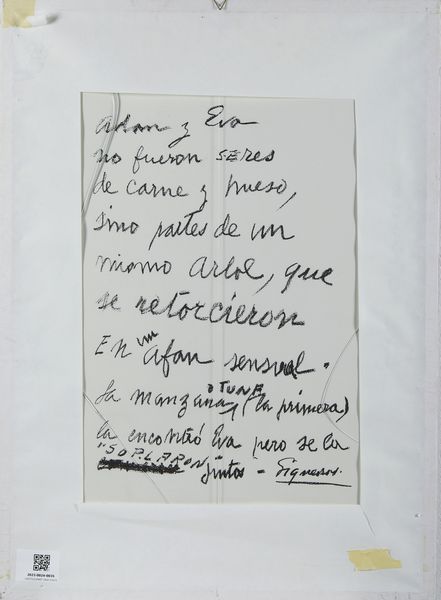 Adan y Eva
no fueron SERES
de carne y hueso,
sino partes de un
mismo arbol, que
se retorcieron
En un afan sensual.
La manzana, O TUNA (la primera)
la encontró Eva pero se la
"SOPLARON juntos - Siqueiros.
2023-0024-0035